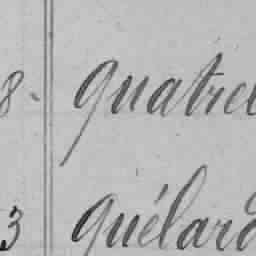 8. Quatrel
3 Quélard